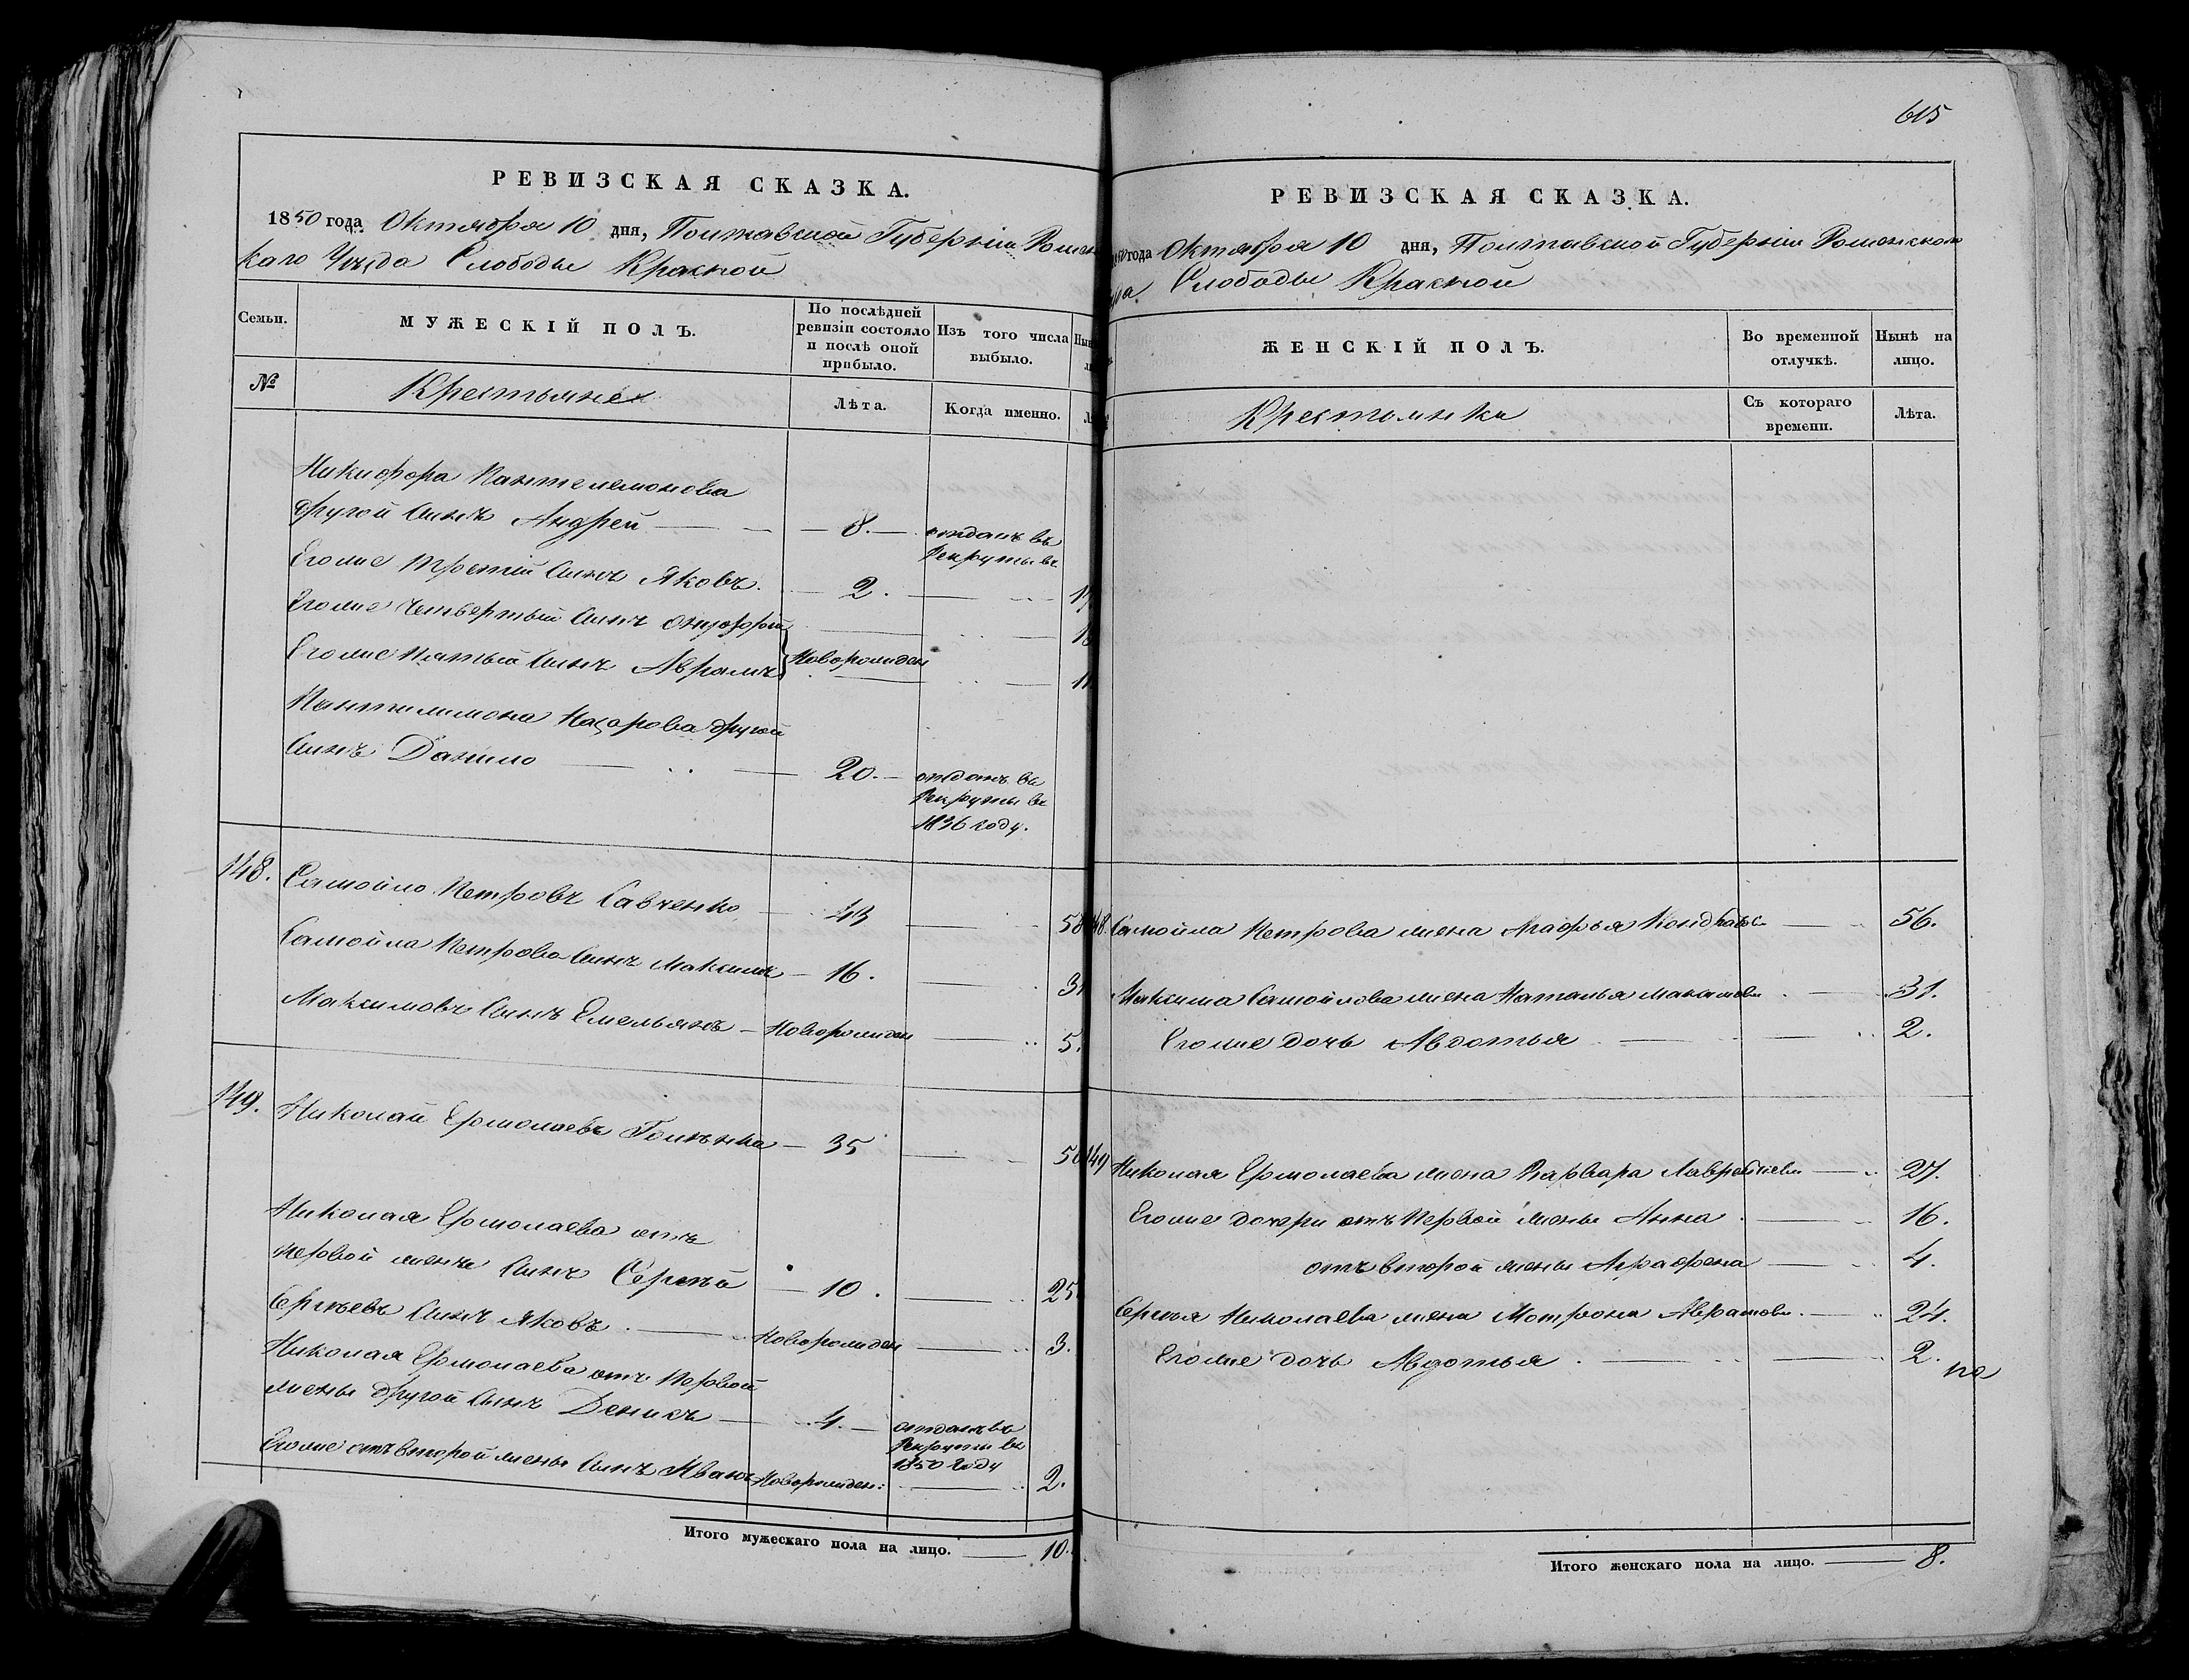 РЕВИЗСКАЯ СКАЗКА.
1850 года Октября 10 дня, Полтавской Губерніи Ромен
каго Уѣзда Слободы Красной
Семьи.
МУЖЕСКІЙ ПОЛЪ.
По послѣдней
ревизіи состояло
и послѣ оной
прибыло.
Изъ того числа
выбыло.
№
Крестьяне
Лѣта.
Когда именно.
Никифора Пантелемонова
другой сынъ Андрей — 8. — отданъ въ
Рекруты въ
Егоже третій сынъ Яковъ. 2.
Егоже четвертый сынъ Онуфрій
Егоже пятый сынъ Аврамъ Новорожден
Пантилимона Назарова другой
сынъ Данило — 20. — отданъ въ
Рекруты въ
1836 году.
148. Самойло Петровъ Савченко — 43 — 58
Самойла Петрова сынъ Максимъ — 16. — 31
Максимовъ сынъ Емельянъ — Новорожден — 5.
149. Николай Ермолаевъ — 35 — 50
Николая Ермолаева отъ
первой жены сынъ Сергѣй — 10. — 25
Сергѣевъ сынъ Яковъ. — Новорожден — 3.
Николая Ермолаева отъ первой
жены другой сынъ Денисъ — 4. — отданъ въ
Рекруты въ
1850 году
Егоже отъ второй жены сынъ Иванъ Новорожден: — 2.
Итого мужескаго пола на лицо. — 10.
615
РЕВИЗСКАЯ СКАЗКА.
года Октября 10 дня, Полтавской Губерніи Роменскаго
Слободы Красной
ЖЕНСКІЙ ПОЛЪ.
Во временной
отлучкѣ.
Нынѣ на
лицо.
Крестьянки
Съ котораго
времени.
Лѣта.
148. Самойла Петрова жена Марфа — 56.
Максима Самойлова жена Наталья — 31.
Егоже дочь Авдотья — 2.
149 Николая Ермолаева жена Варвара — 27.
Егоже дочери отъ первой жены Анна — 16.
отъ второй жены Аграфена — 4.
Сергѣя Николаева жена Мотрона Аврамова — 24.
Егоже дочь Авдотья. — 2.
Итого женскаго пола на лицо. — 8.